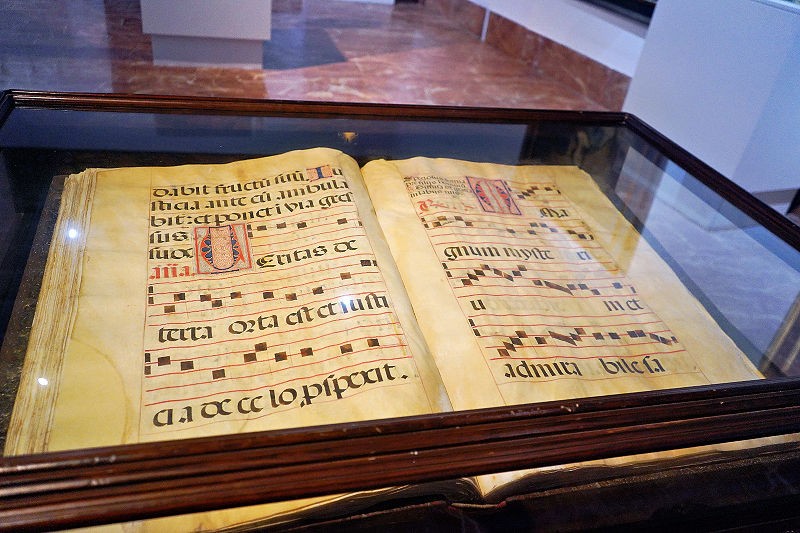 dabit fructū suū. Iu
sticia ante eū ambula
bit: et ponet i via gres
sus
suos
ana. V Eritas de
terra orta est et iusti
cia de celo pspexit.
M Ma
gnum myste ri
u m et
admira bile sa